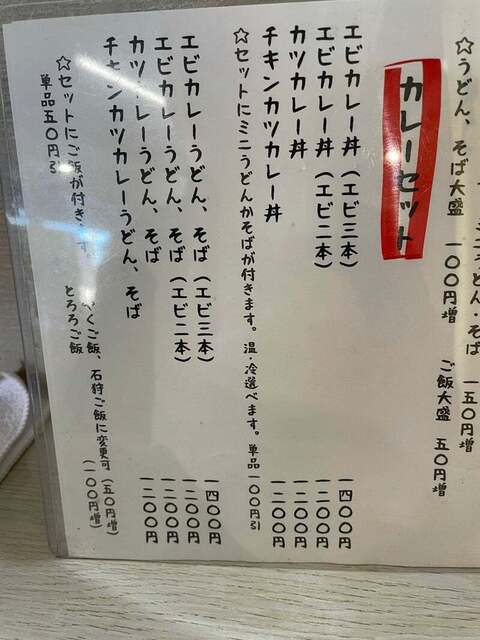 ミニうどん・そば 一五〇円増
☆うどん、そば大盛 一〇〇円増 ご飯大盛 五〇円増
カレーセット
エビカレー丼(エビ三本) 一四〇〇円
エビカレー丼(エビ二本) 一二〇〇円
カツカレー丼 一二〇〇円
チキンカツカレー丼 一二〇〇円
☆セットにミニうどんかそばが付きます。温・冷選べます。単品一〇〇円引
エビカレーうどん、そば(エビ三本) 一四〇〇円
エビカレーうどん、そば(エビ二本) 一二〇〇円
カツカレーうどん、そば 一二〇〇円
チキンカツカレーうどん、そば 一二〇〇円
☆セットにご飯が付きます。 やくご飯、石狩ご飯に変更可(五〇円増)
単品五〇円引 とろろご飯 (一〇〇円増)